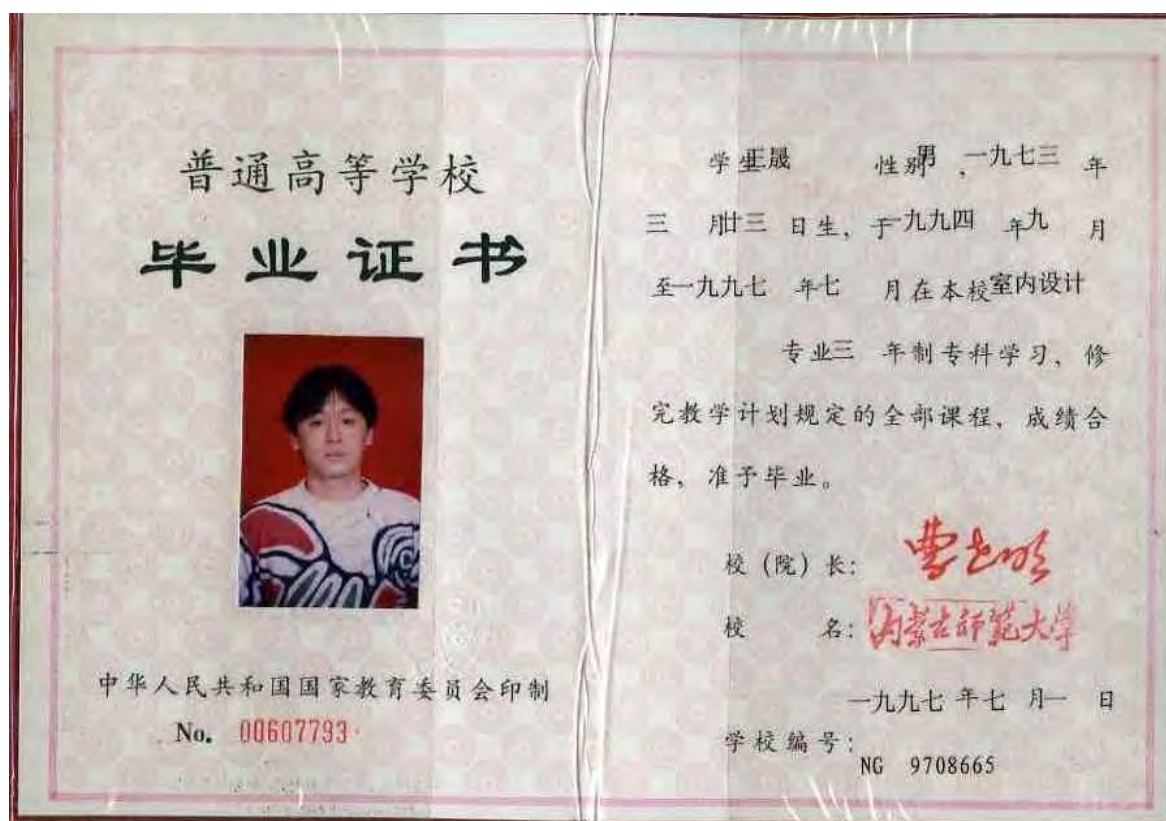 普通高等学校
毕业证书
中华人民共和国国家教育委员会印制
No. 00607793
学生王晟 性别男，一九七三 年
三 月廿三 日生，于一九九四 年九 月
至一九九七 年七 月在本校室内设计
专业三 年制专科学习，修
完教学计划规定的全部课程，成绩合
格，准予毕业。
校（院）长：
校 名：内蒙古师范大学
一九九七 年七 月一 日
学校编号：
NG 9708665